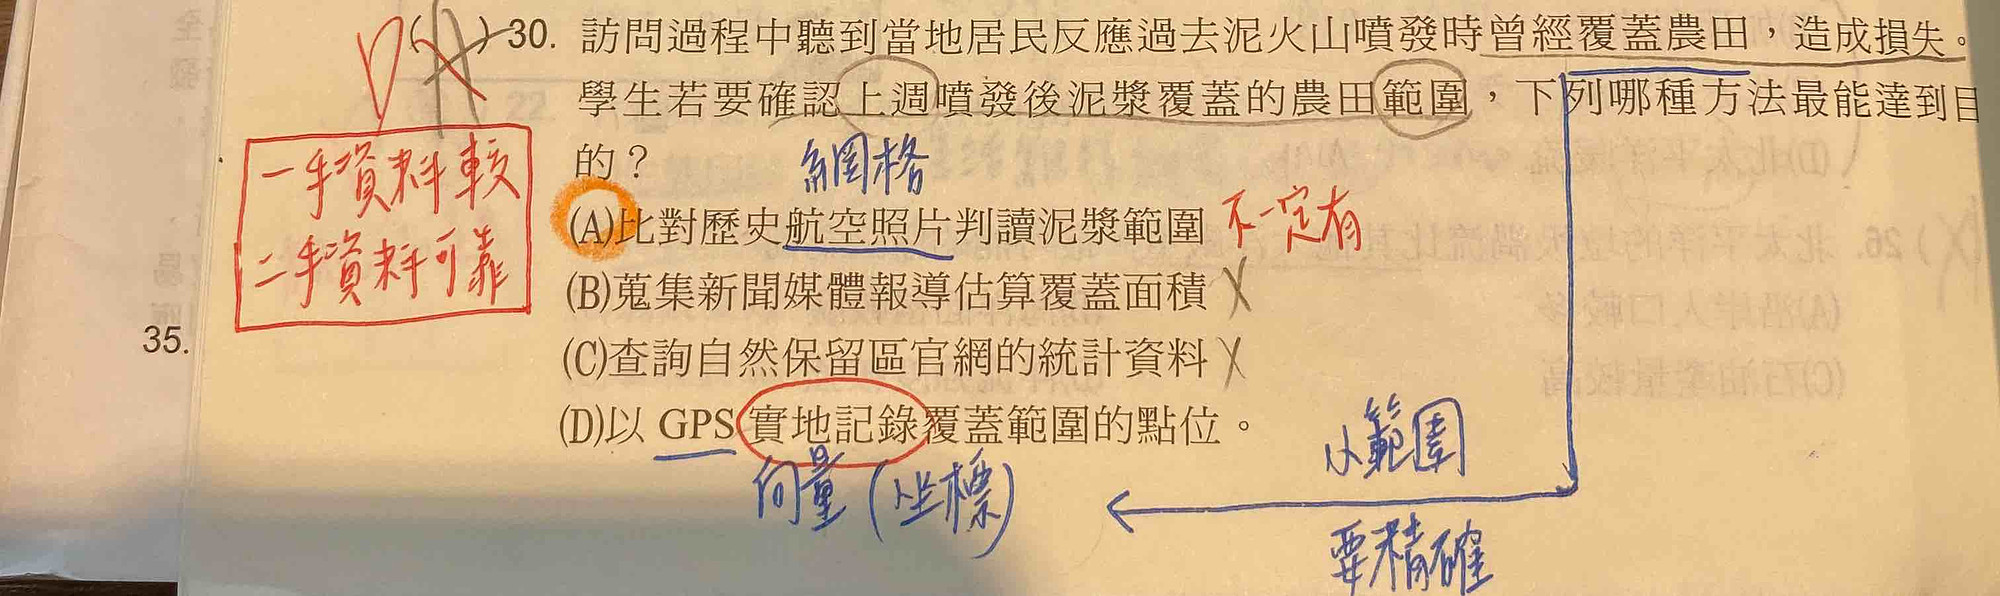 D
(A) 30. 訪問過程中聽到當地居民反應過去泥火山噴發時曾經覆蓋農田，造成損失。
學生若要確認上週噴發後泥漿覆蓋的農田範圍，下列哪種方法最能達到目
的？
網格
(A)比對歷史航空照片判讀泥漿範圍 不一定有
(B)蒐集新聞媒體報導估算覆蓋面積 X
(C)查詢自然保留區官網的統計資料 X
(D)以 GPS 實地記錄覆蓋範圍的點位。
向量(坐標)
小範圍
要精確
一手資料較
二手資料可靠
35.